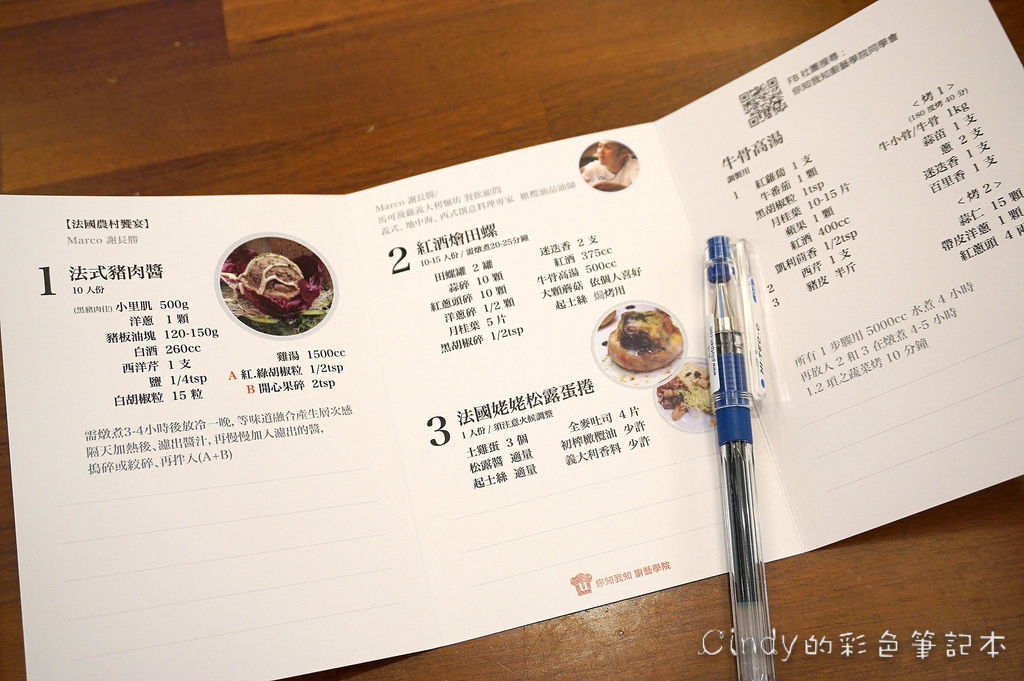 【法國農村饗宴】
Marco 謝長勝
1 法式豬肉醬
10 人份
(黑豬肉佳) 小里肌 500g
洋蔥 1 顆
豬板油塊 120-150g
白酒 260cc
西洋芹 1 支
鹽 1/4tsp
白胡椒粒 15 粒
雞湯 1500cc
A 紅.綠胡椒粒 1/2tsp
B 開心果碎 2tsp
需燉煮3-4小時後放冷一晚, 等味道融合產生層次感
隔天加熱後、濾出醬汁, 再慢慢加入濾出的醬,
搗碎或絞碎、再拌入(A+B)
Marco 謝長勝/
馬可波羅義大利麵坊 餐飲顧問
義式、地中海、西式創意料理專家 橄欖油品油師
2 紅酒燴田螺
10-15 人份 / 需燉煮20-25分鐘
田螺罐 2 罐
蒜碎 10 顆
紅蔥頭碎 10 顆
洋蔥碎 1/2 顆
月桂葉 5 片
黑胡椒碎 1/2tsp
迷迭香 2 支
紅酒 375cc
牛骨高湯 500cc
大顆蘑菇 依個人喜好
起士絲 焗烤用
3 法國姥姥松露蛋捲
1 人份 / 須注意火候調整
土雞蛋 3 個
松露醬 適量
起士絲 適量
全麥吐司 4 片
初榨橄欖油 少許
義大利香料 少許
你知我知 廚藝學院
FB 社團搜尋：
你知我知廚藝學院同學會
牛骨高湯
調製用
1 紅蘿蔔 1 支
牛番茄 1 顆
黑胡椒粒 1tsp
月桂葉 10-15 片
蘋果 1 顆
紅酒 400cc
凱利茴香 1/2tsp
2 西芹 1 支
3 豬皮 半斤
<烤 1>
(180 度烤 40 分)
牛小骨/牛骨 1kg
蒜苗 1 支
蔥 2 支
迷迭香 1 支
百里香 1 支
<烤 2>
蒜仁 15 顆
帶皮洋蔥 1 顆
紅蔥頭 4 兩
所有 1 步驟用 5000cc 水煮 4 小時
再放入 2 和 3 在燉煮 4-5 小時
1.2 項之蔬菜烤 10 分鐘
Cindy的彩色筆記本